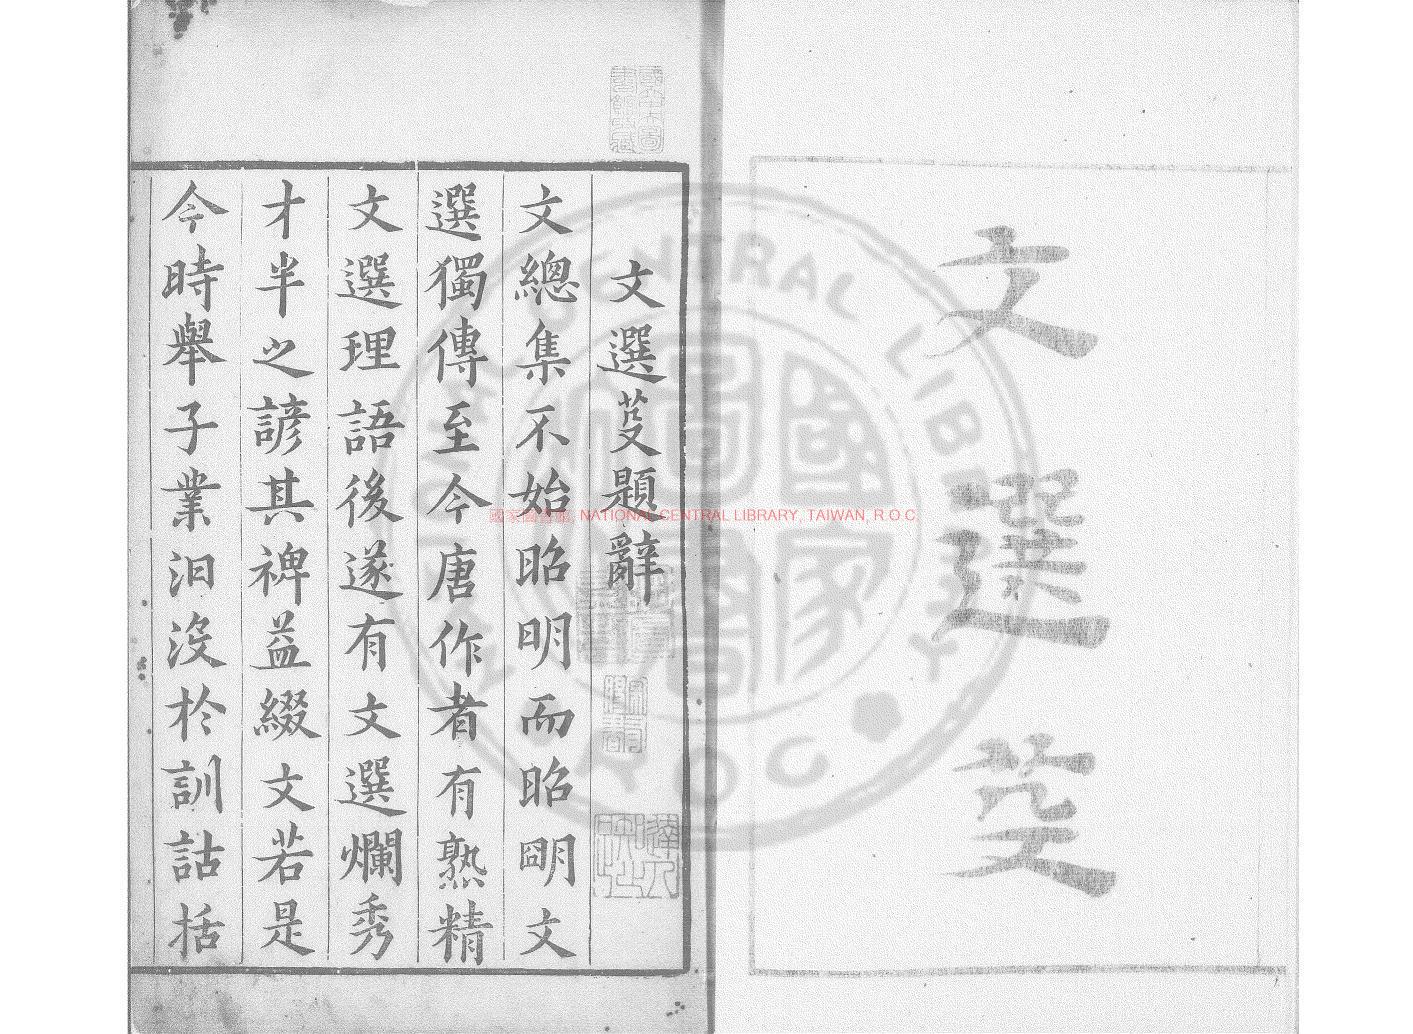 文選芟
文選芟題辭
文總集不始昭明而昭明文
選獨傳至今唐作者有熟精
文選理語後遂有文選爛秀
才半之諺其裨益綴文若是
今時舉子業汩沒於訓詁括
國家圖書館, NATIONAL CENTRAL LIBRARY, TAIWAN, R.O.C.
CENTRAL LIBRARY
ROC
國家圖書